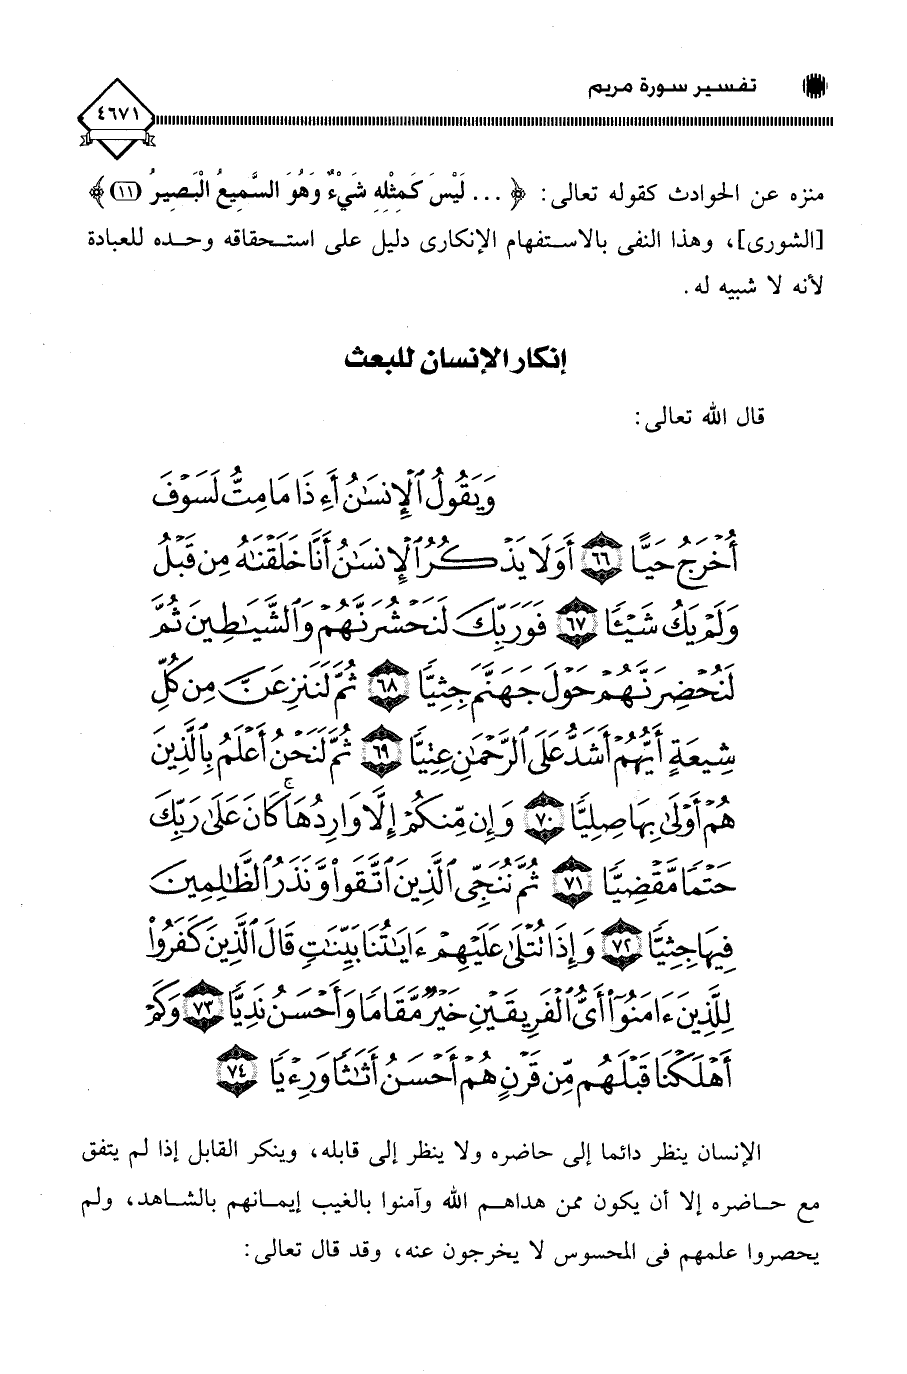 تفسير سورة مريم
٤٦٧١
منزه عن الحوادث كقوله تعالى: ﴿... لَيْسَ كَمِثْلِهِ شَيْءٌ وَهُوَ السَّمِيعُ الْبَصِيرُ (١١)﴾
[الشورى]، وهذا النفى بالاستفهام الإنكارى دليل على استحقاقه وحده للعبادة
لأنه لا شبيه له.
إنكار الإنسان للبعث
قال الله تعالى:
وَيَقُولُ ٱلْإِنسَٰنُ أَءِذَا مَا مِتُّ لَسَوْفَ
أُخْرَجُ حَيًّا ٦٦ أَوَلَا يَذْكُرُ ٱلْإِنسَٰنُ أَنَّا خَلَقْنَٰهُ مِن قَبْلُ
وَلَمْ يَكُ شَيْـًٔا ٦٧ فَوَرَبِّكَ لَنَحْشُرَنَّهُمْ وَٱلشَّيَٰطِينَ ثُمَّ
لَنُحْضِرَنَّهُمْ حَوْلَ جَهَنَّمَ جِثِيًّا ٦٨ ثُمَّ لَنَنزِعَنَّ مِن كُلِّ
شِيعَةٍ أَيُّهُمْ أَشَدُّ عَلَى ٱلرَّحْمَٰنِ عِتِيًّا ٦٩ ثُمَّ لَنَحْنُ أَعْلَمُ بِٱلَّذِينَ
هُمْ أَوْلَىٰ بِهَا صِلِيًّا ٧٠ وَإِن مِّنكُمْ إِلَّا وَارِدُهَا ۚ كَانَ عَلَىٰ رَبِّكَ
حَتْمًا مَّقْضِيًّا ٧١ ثُمَّ نُنَجِّى ٱلَّذِينَ ٱتَّقَوا۟ وَّنَذَرُ ٱلظَّٰلِمِينَ
فِيهَا جِثِيًّا ٧٢ وَإِذَا تُتْلَىٰ عَلَيْهِمْ ءَايَٰتُنَا بَيِّنَٰتٍ قَالَ ٱلَّذِينَ كَفَرُوا۟
لِلَّذِينَ ءَامَنُوٓا۟ أَىُّ ٱلْفَرِيقَيْنِ خَيْرٌ مَّقَامًا وَأَحْسَنُ نَدِيًّا ٧٣ وَكَمْ
أَهْلَكْنَا قَبْلَهُم مِّن قَرْنٍ هُمْ أَحْسَنُ أَثَٰثًا وَرِءْيًا ٧٤
الإنسان ينظر دائما إلى حاضره ولا ينظر إلى قابله، وينكر القابل إذا لم يتفق
مع حاضره إلا أن يكون ممن هداهم الله وآمنوا بالغيب إيمانهم بالشاهد، ولم
يحصروا علمهم فى المحسوس لا يخرجون عنه، وقد قال تعالى: